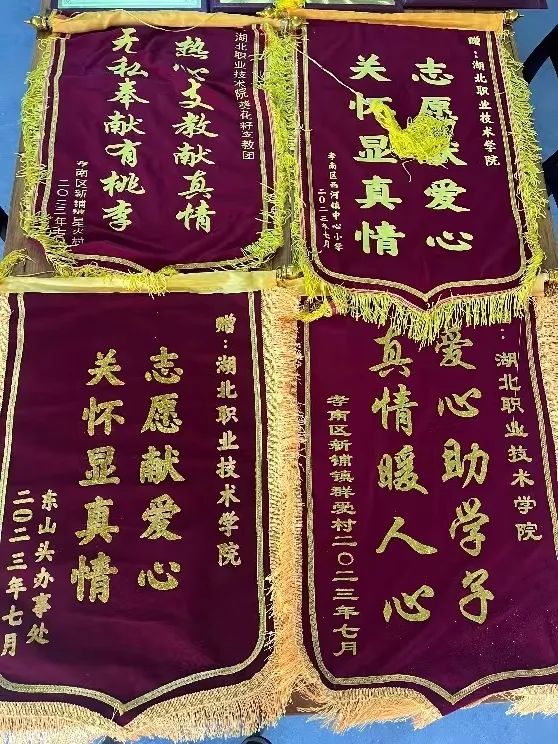 湖北职业技术学院映花籽支教团
热心支教献真情
无私奉献有桃李
孝南区新铺镇星火村
二〇二三年七月
赠：湖北职业技术学院
志愿献爱心
关怀显真情
孝南区西河镇中心小学
二〇二三年七月
赠：湖北职业技术学院
志愿献爱心
关怀显真情
东山头办事处
二〇二三年七月
：湖北职业技术学院
爱心助学子
真情暖人心
孝南区新铺镇群爱村二〇二三年七月